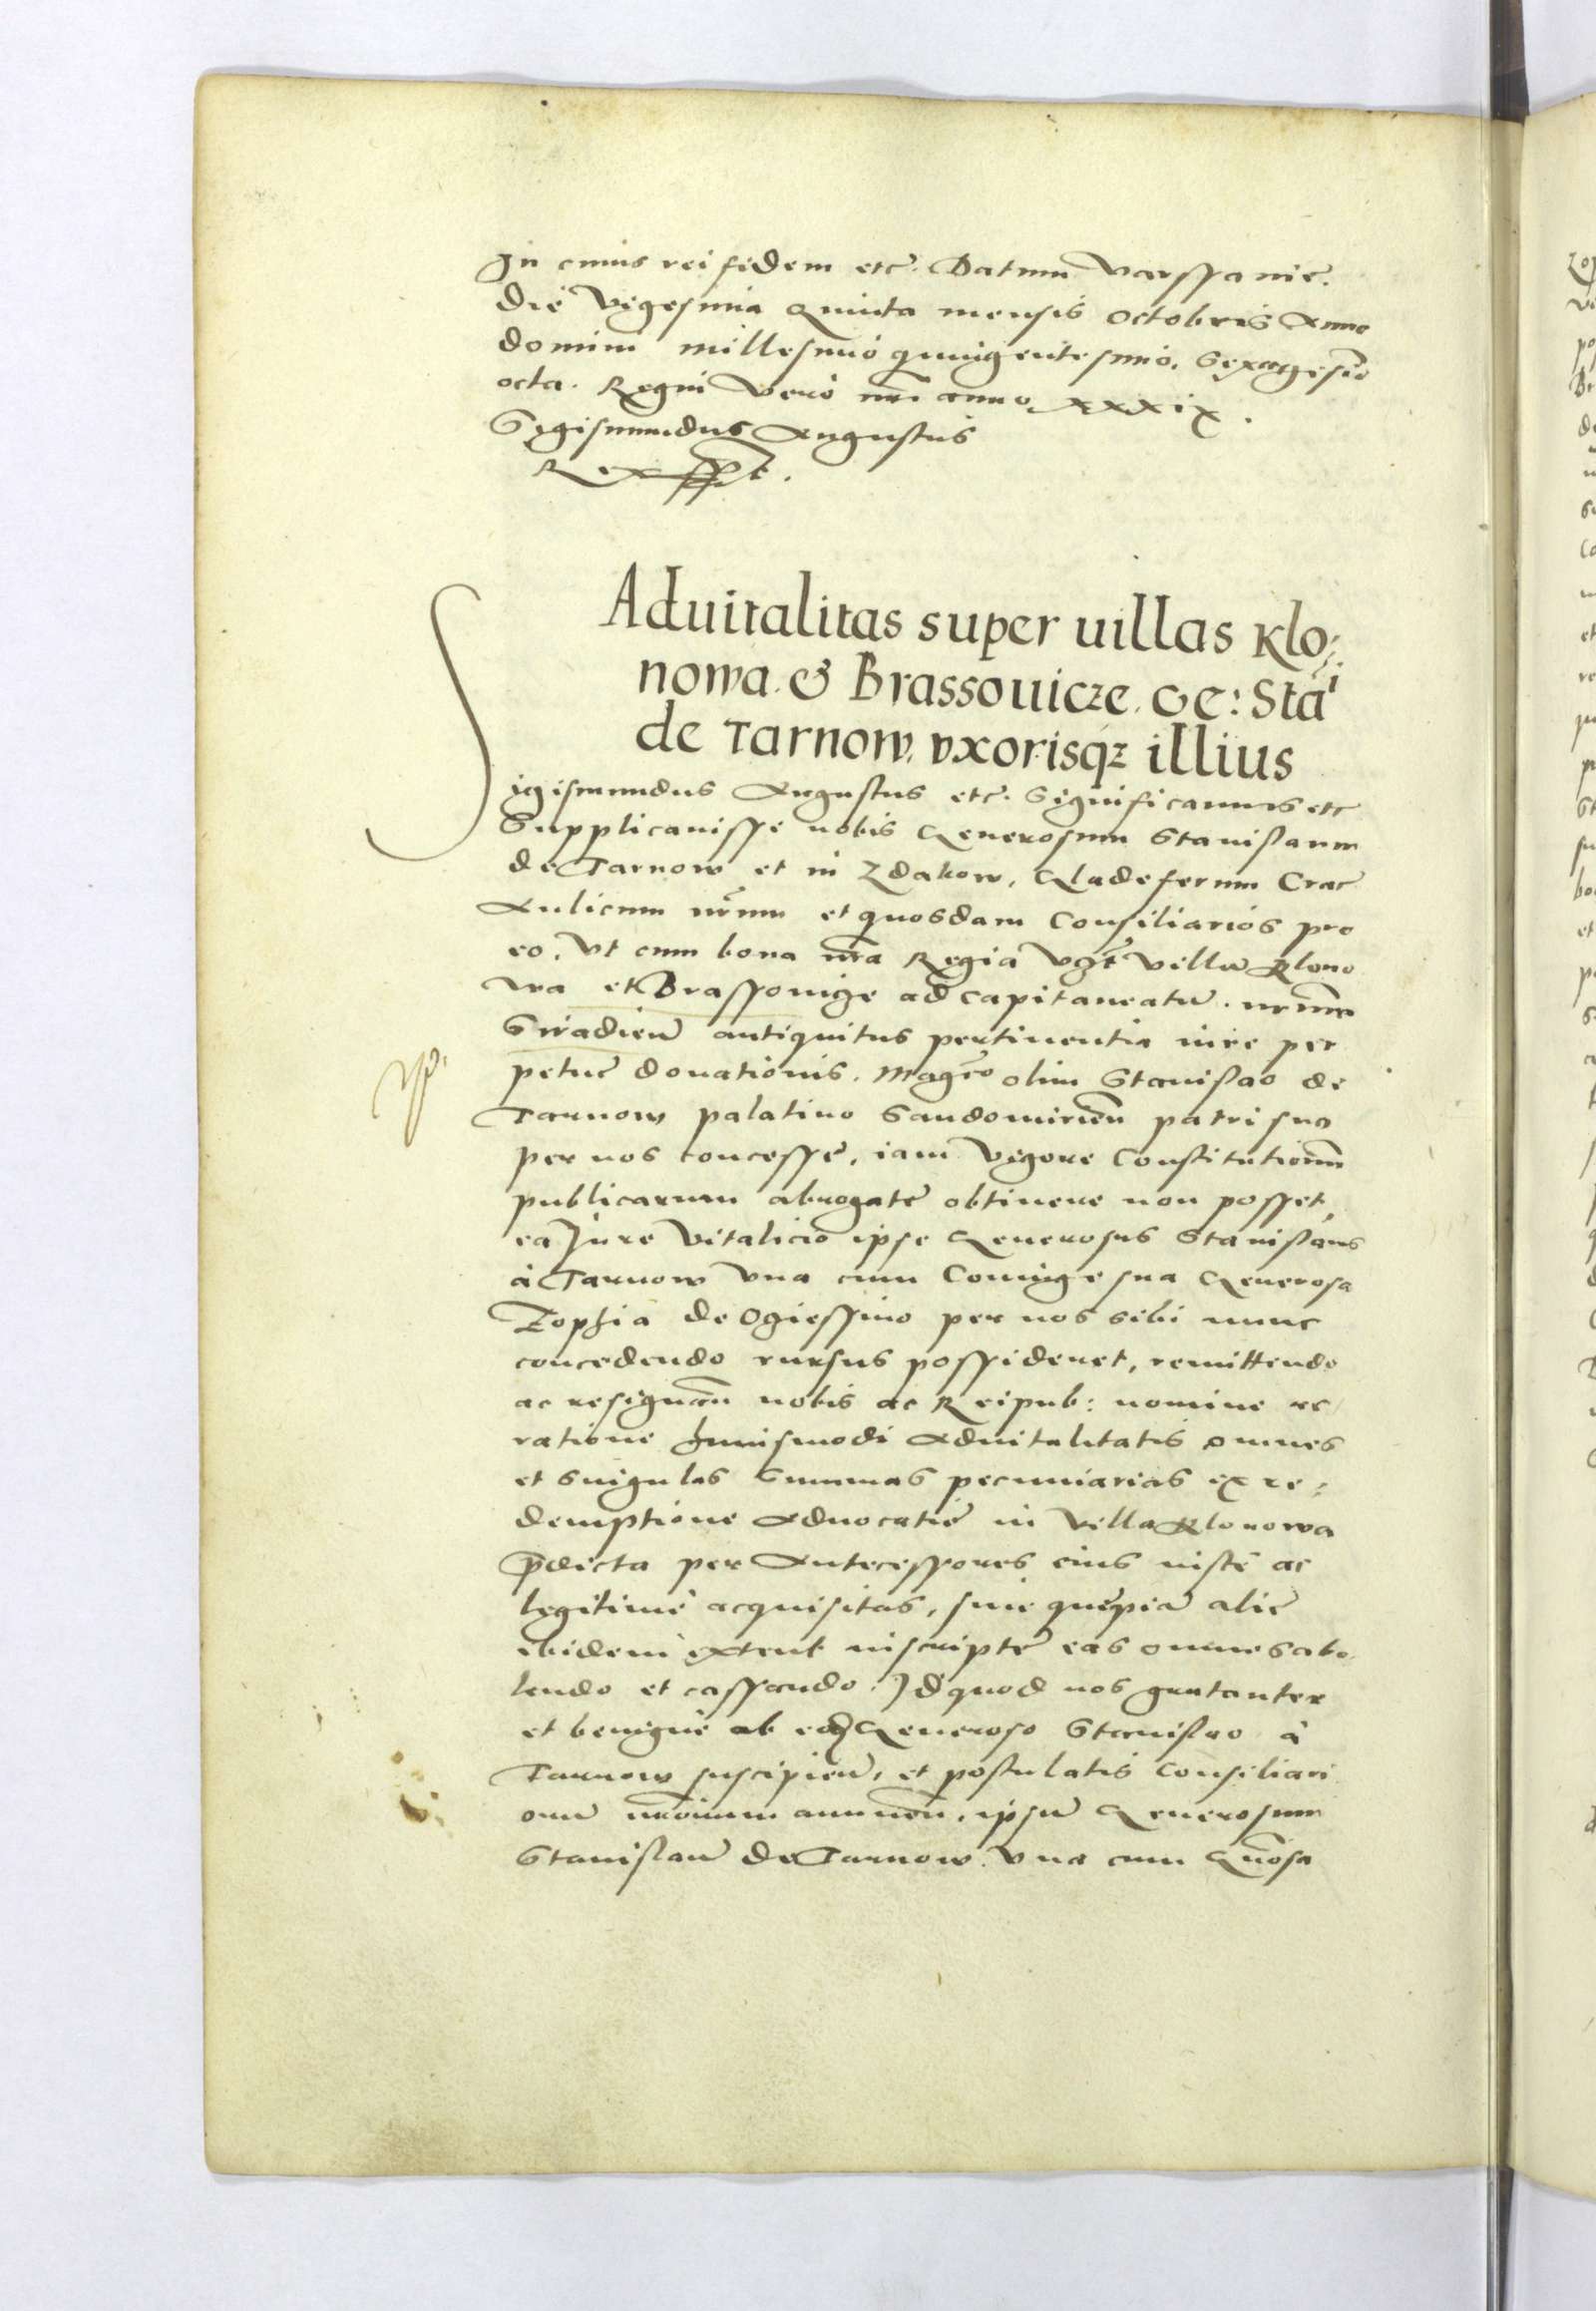 In cuius rei fidem etc. Datum Varssavie.
Die Vigesima Quinta mensis Octobris Anno
domini millesimo quingentesimo, Sexagesimo
octa. Regni vero nri anno xxxix.
Sigismundus Augustus
Rex sspt.
Aduitalitas super uillas Klo,
nowa. & Brassouicze. Ge: Stai
de Tarnow, vxorisqz illius
Sigismundus Augustus etc. Significamus etc
Supplicauisse nobis Generosum Stanislaum
de Tarnow et in Zdakow, Gladiferum Crac
Aulicum nrum et quosdam Consiliarios pro
eo, Vt cum bona nra Regia vzt villa Klono
wa et Brassouize ad Capitaneatu. nrum
Siradien antiquitus pertinentia iure per
petue donationis. Magco olim Stanislao de
Tarnow palatino Sandomirien patri suo
per nos concesse, iam vigore Constitutionum
publicarum abrogate obtinere non posset,
ea Jure Vitalicio ipse Generosus Stanislaus
à Tarnow vna cum Coniuge sua Generosa
Zophia de Ogiessino per nos sibi nunc
concedendo rursus possideret, remittendo
ac resignan nobis ac Reipub: nomine ac
ratione huiusmodi Aduitalitatis omnes
et singulas Summas pecuniarias ex re,
demptione Aduocatie in Villa Klonowa
pdicta per Antecessores eius iuste ac
legitime acquisitas, siue quepia alie
ibidem extent inscripte eas omnes abo
lendo et cassando. Id quod nos gratanter
et benigne ab eod Generoso Stanislao à
Tarnow suscipien, et postulatis Consiliari
oru nrorum annuen, ipsu Generosum
Stanislau de Tarnow. vna cum Gnosa